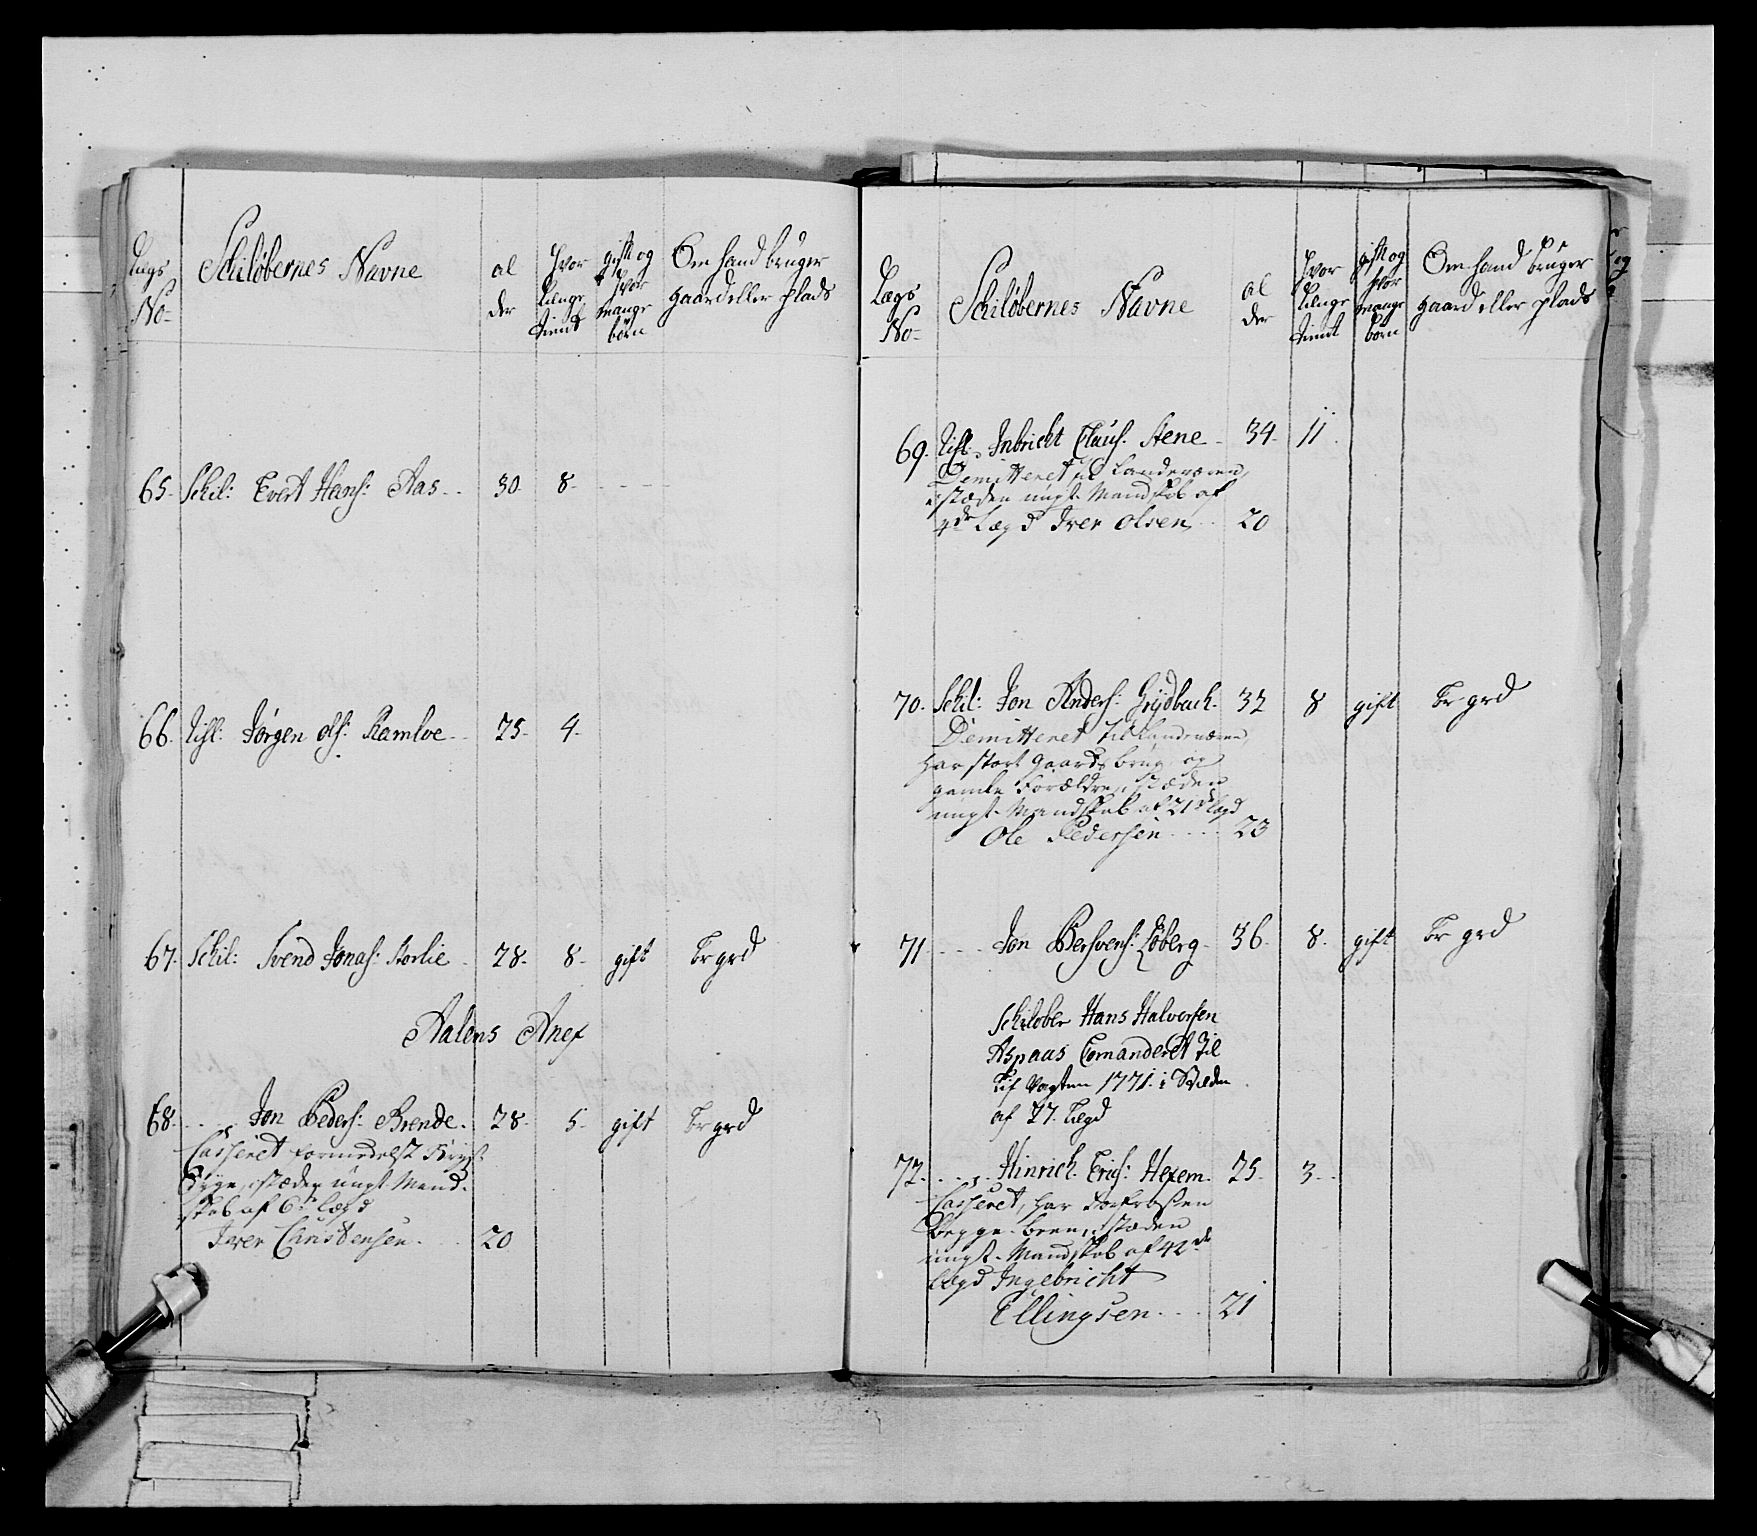 Lægs
No-
Schiløbernes Navne
al
der
Hvor
længe
tient
gift og
Hvor
mange
børn
Om hand bruger
gaard eller plads
65. Schil: Evert Hans: Aas. . 30. 8.
66. Jørgen Ols: Ramloe 25. 4.
67. Schil: Svend Jonas: Morlie . 28. 8. gift Br grd
Aalens Anex
68. . . . Jon Peders: Brende. 28. 5. gift Br grd
Casseret formedelst
Syge, i stæden ungt Mand-
skab af 6te Lægd
Iver Christensen . . 20
Lægs
No-
Schiløbernes Navne
al
der
Hvor
længe
tient
gift og
Hvor
mange
børn
Om hand bruger
gaard eller plads
69. Inbricht Claus: Stene . 34. 11.
Demitteret til Landeværen,
i stæden ungt Mandskab af
4de Lægd Iver Olsen . . 20
70. Schil: Jon Anders: Grydbach. 32 8 gift Br grd
Demitteret til Landeværen,
har stort gaards brug og
gamle Forældre, i stæden
ungt Mandskab af 21de Lægd
Ole Pedersen . . . . 23
71 . . . Jon Bersvens: Løberg. 36. 8. gift Br grd
Schiløber Hans Halvorsen
Aspaas Comanderet til
Lif Vagten 1771. i Stæden
af 77. Lægd
72. . . . Hinrich Erics: Hexem. 25. 3. .
Casseret, har
begge been, i stæden
ungt Mandskab af 42de
Lægd Ingebricht
Ellingsen . . . 21